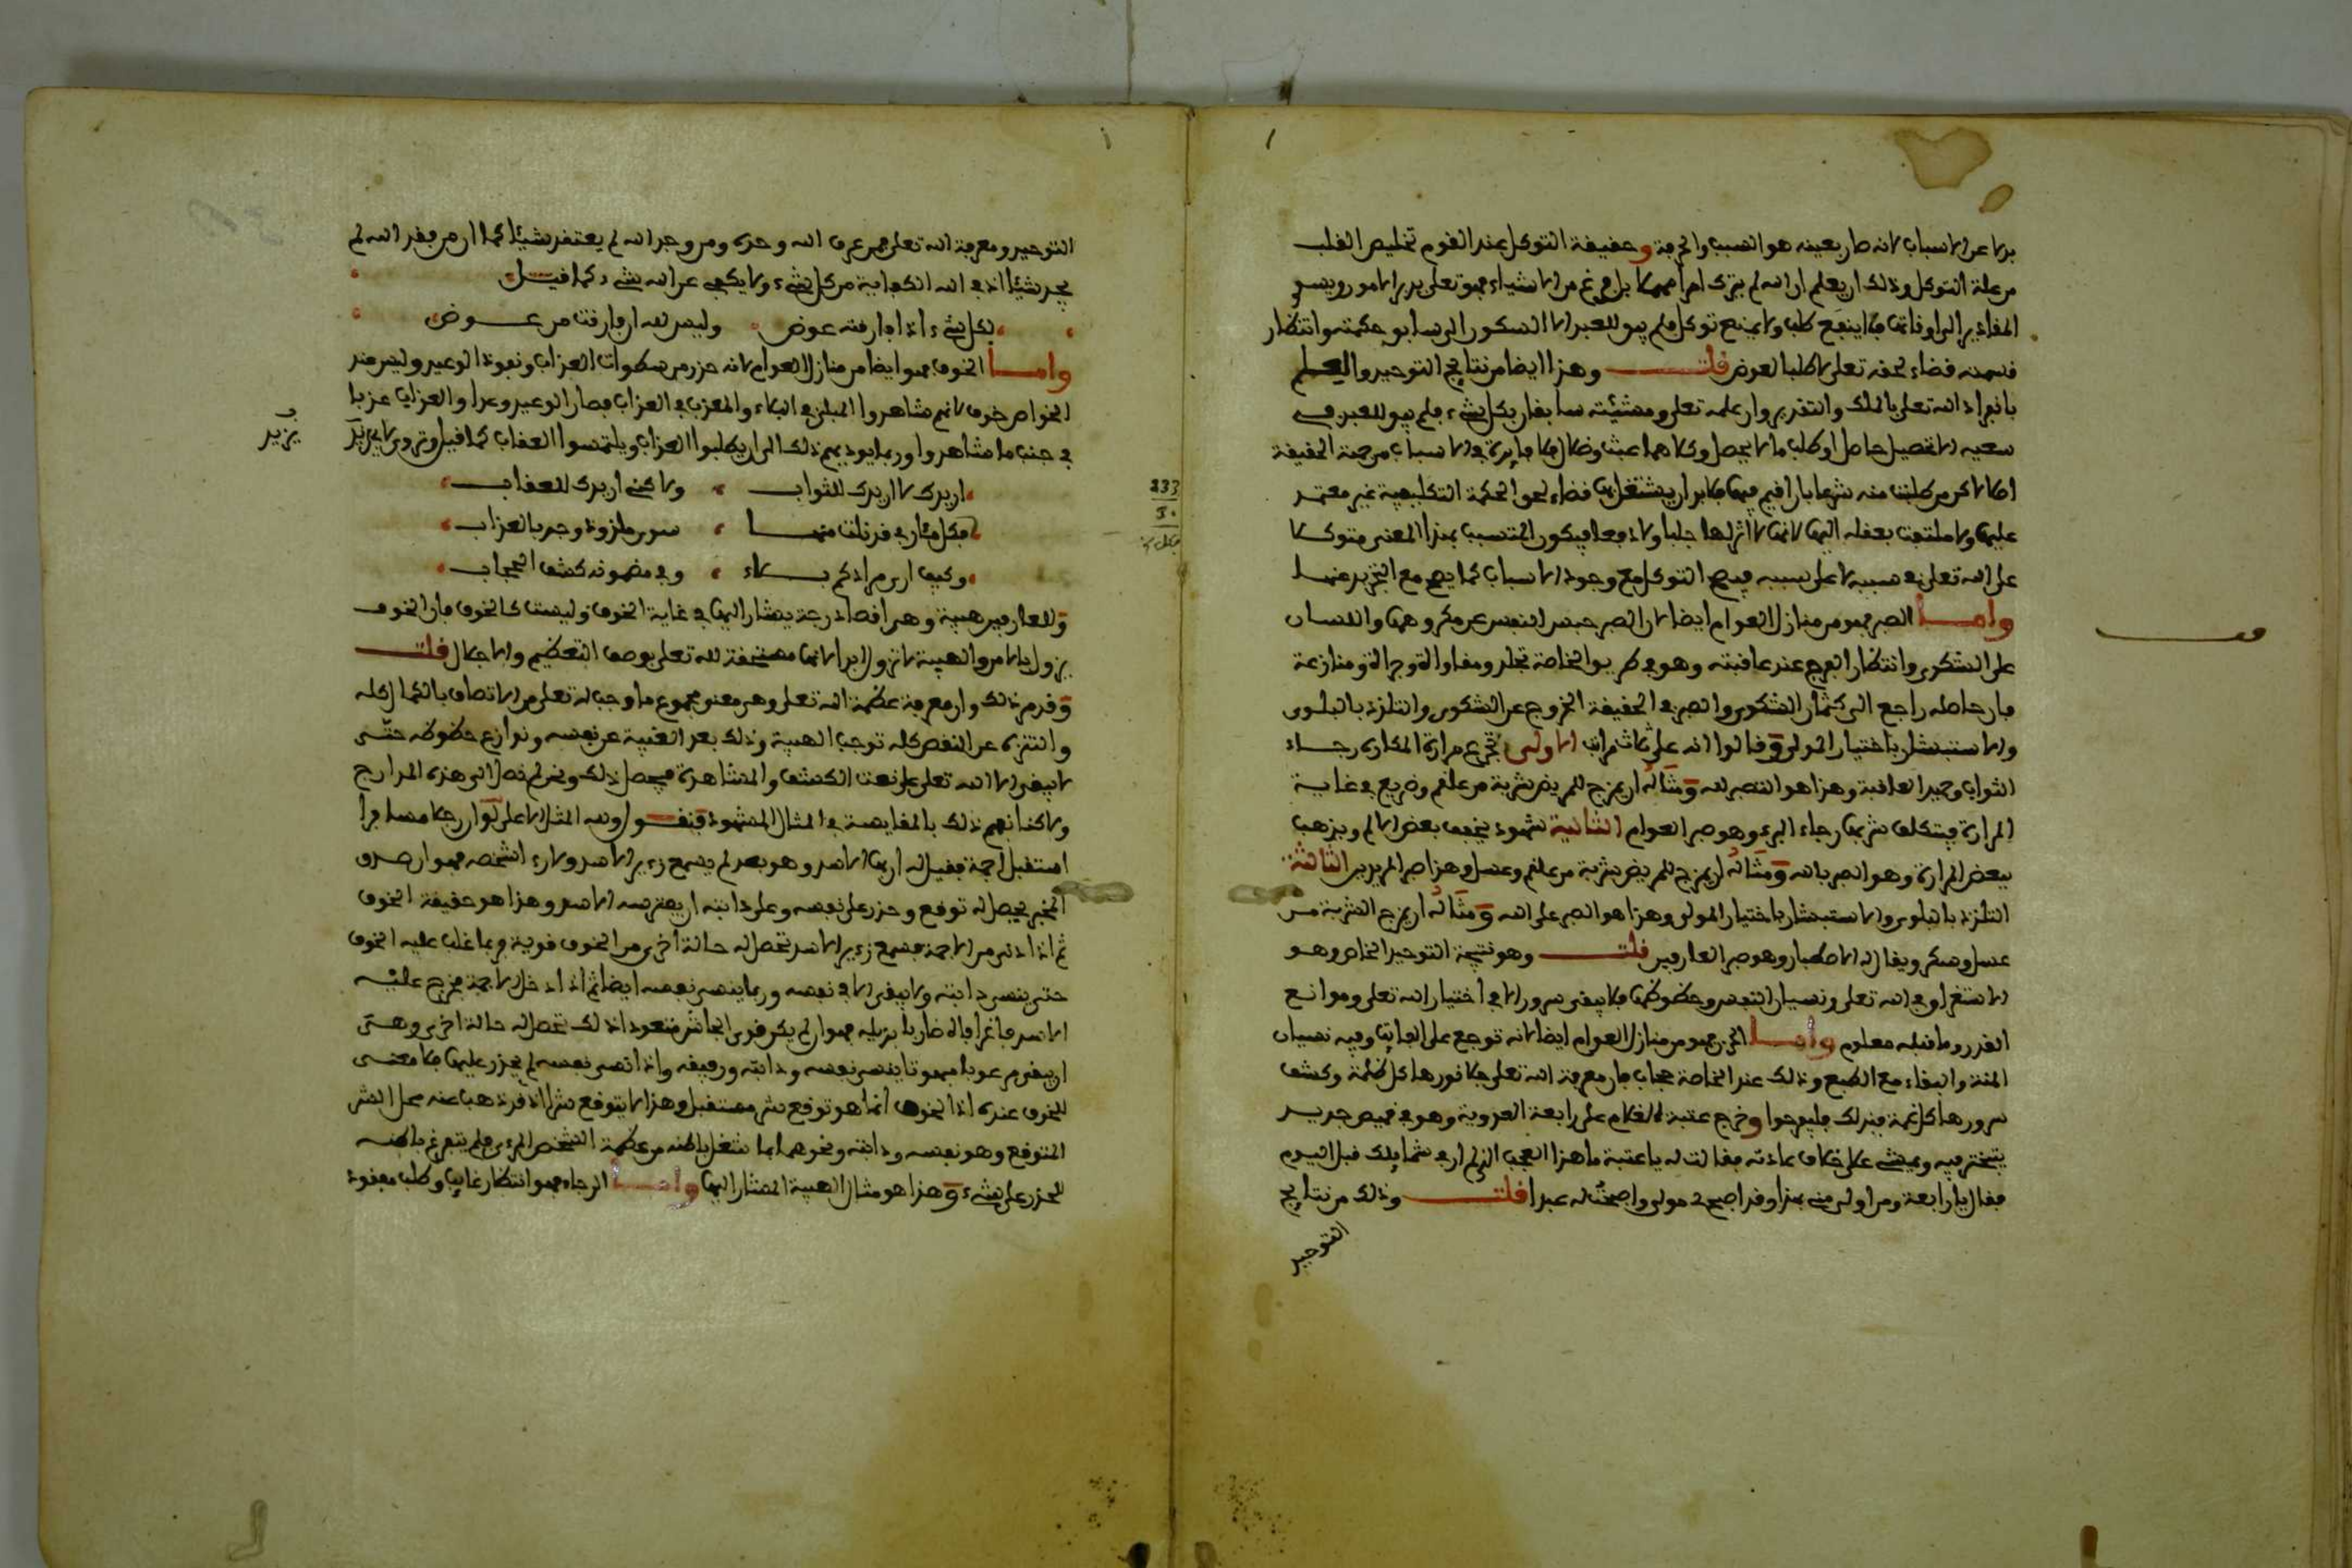 بدلا عن الاسباب لانه صار بعينه هو السبب والحرفة وحقيقة التوكل عند القوم تخليص القلب
من علة التوكل وذلك ان يعلم ان الله لم يترك امرا مهملا بل فرغ من الاشياء فهو تعلى يدبر الامور ويسوق
المقادير الى اوقاتها فلا ينفع طلب ولا يمنع توكل فلم يبق للعبد الا السكون الى سابق حكمته وانتظار
قسمه قضاء لحقه تعلى لا طلبا لعوض قلت وهذا ايضا من نتايج التوحيد والعلم
بانفراد الله تعلى بالملك والتقدير وان علمه تعلى ومشيئته سابقان بكل شيء فلم يبق للعبد في
سعيه الا تحصيل حاصل او طلب ما لا يحصل وكلاهما عبث وضلال فلا فايدة في الاسباب من جهة الحقيقة
اصلا لاكن من طلبت منه شرعا بان اقيم فيها فلابد ان يشتغل بها قضاء لحق الحكمة التكليفية غير معتمد
عليها ولا ملتفت بعقله اليها لانها لا اثر لها جلبا ولا دفعا فيكون المتسبب بهذا المعنى متوكلا
على الله تعلى في سببه لا على سببه فيصح التوكل مع وجود الاسباب كما يصح مع التجريد عنها
واما الصبر فهو من منازل العوام ايضا لان الصبر حبس النفس عن مكروهها واللسان
على الشكوى وانتظار الفرج عند عاقبته وهو في طريق الخاصة تجلد ومقاواة وجراة ومنازعة
فان حاصله راجع الى كتمان الشكوى والصبر في الحقيقة الخروج عن الشكوى والتلذذ بالبلوى
والاستبشار باختيار المولى وقالوا انه على ثلاث مراتب الاولى تجرع مرارة المكاره رجاء
الثواب وحميد العاقبة وهذا هو التصبر لله ومثاله ان يمزج للمريض شربة من علقم وضريع في غاية
المرارة فيتكلف شربها رجاء البرء وهو صبر العوام الثانية شهود يخفف بعض الالم ويذهب
ببعض المرارة وهو الصبر بالله ومثاله ان يمزج للمريض شربة من علقم وعسل وهذا صبر المريدين الثالثة
التلذذ بالبلوى والاستبشار باختيار المولى وهذا هو الصبر على الله ومثاله ان يمزج الشربة من
عسل وسكر ويقال له الاصطبار وهو صبر العارفين قلت وهو نتيجة التوحيد الخاص وهو
الاستغراق في الله تعلى ونسيان النفس وحظوظها فلا يبقى سرور الا في اختيار الله تعلى ومواقع
القدر وما قبله معلوم واما الحزن فهو من منازل العوام ايضا لانه توجع على الفايت وفيه نسيان
المنة والبقاء مع الطبع وذلك عند الخاصة حجاب فان معرفة الله تعلى جلا نورها كل ظلمة وكشف
سرورها كل غمة فبذلك فليفرحوا وخرج عتبة الغلام على رابعة العدوية وهو في قميص جديد
يتبختر فيه ويمشي على خلاف عادته فقالت له يا عتبة ما هذا العجب الذي لم ار في شمايلك قبل اليوم
فقال يا رابعة ومن اولى مني بهذا وقد اصبح لي مولى واصبحت له عبدا قلت وذلك من نتايج
التوحيد
التوحيد ومعرفة الله تعلى فمن عرف الله وحده ومن وجد الله لم يفتقد شيئا كما ان من فقد الله لم
يجد شيئا اذ في الله الكفاية من كل شيء ولا يكفي عن الله شيء كما قيل
لكل شيء اذا فارقته عوض وليس لله ان فارقت من عوض
واما الخوف فهو ايضا من منازل العوام لانه حذر من سطوات العذاب ونفوذ الوعيد وليس عند
الخواص خوف لانهم شاهدوا المبلي في البلاء والمعذب في العذاب فصار الوعيد وعدا والعذاب عذبا
في جنب ما شاهدوا وربما يوديهم ذلك الى ان يطلبوا العذاب ويلتمسوا العقاب كما قيل وتروى لابي يزيد
يزيد
اريدك لا اريدك للثواب ولاكني اريدك للعقاب
فكل مئاربي قد نلت منها سوى ملذوذ وجدي بالعذاب
233
50
وكيف اروم رادكم بلاء وفي مضمونه كشف الحجاب
وللعارفين هيبة وهي اقصى درجة يشار اليها في غاية الخوف وليست كالخوف فان الخوف
يزول بالامن والهيبة لا تزول ابدا لانها مستحقة لله تعلى بوصف التعظيم والاجلال قلت
وقد مر ذلك وان معرفة عظمة الله تعلى وهي معنى مجموع ما وجب له تعلى من الاتصاف بالكمال كله
والتنزه عن النقص كله توجب الهيبة وذلك بعد الغيبة عن نفسه ونوازع حظوظه حتى
لا يبقى الا الله تعلى على نعت الكشف والمشاهدة فيحصل ذلك ونحن لم نصل الى هذه المدارج
ولاكنا نفهم ذلك بالمقايسة في المثال المشهود فنقول ولله المثل الاعلى لو ان رجلا مسافرا
استقبل اجمة فقيل له ان بها الاسد وهو بعد لم يسمع زئير الاسد ولا رءا شخصه فهو ان صدق
المخبر يحصل له توقع وحذر على نفسه وعلى دابته ان يفترسه الاسد وهذا هو حقيقة الخوف
ثم اذا دنى من الاجمة فسمع زئير الاسد تحصل له حالة اخرى من الخوف قوية وربما غلب عليه الخوف
حتى ينسى دابته ولا يبقى الا في نفسه وربما ينسى نفسه ايضا ثم اذا دخل الاجمة فخرج عليه
الاسد فاغرا فاه ضاربا بذيله فهو ان لم يكن قوي الجاش متعودا ذلك تحصل له حالة اخرى وهي
ان يبقى مرعوبا مبهوتا ينسى نفسه ودابته ورفيقه واذا نسي نفسه لم يحذر عليها فلا معنى
للخوف عنده اذا الخوف انما هو توقع شر مستقبل وهذا لا يتوقع شرا اذ قد ذهب عنه محل الشر
المتوقع وهو نفسه ودابته ونحوهما لما شغل باطنه من عظمة الشخص المرءي فلم يتفرغ باطنه
للحذر على شيء وهذا هو مثال الهيبة المشار اليها واما الرجاء فهو انتظار غايب وطلب مفقود